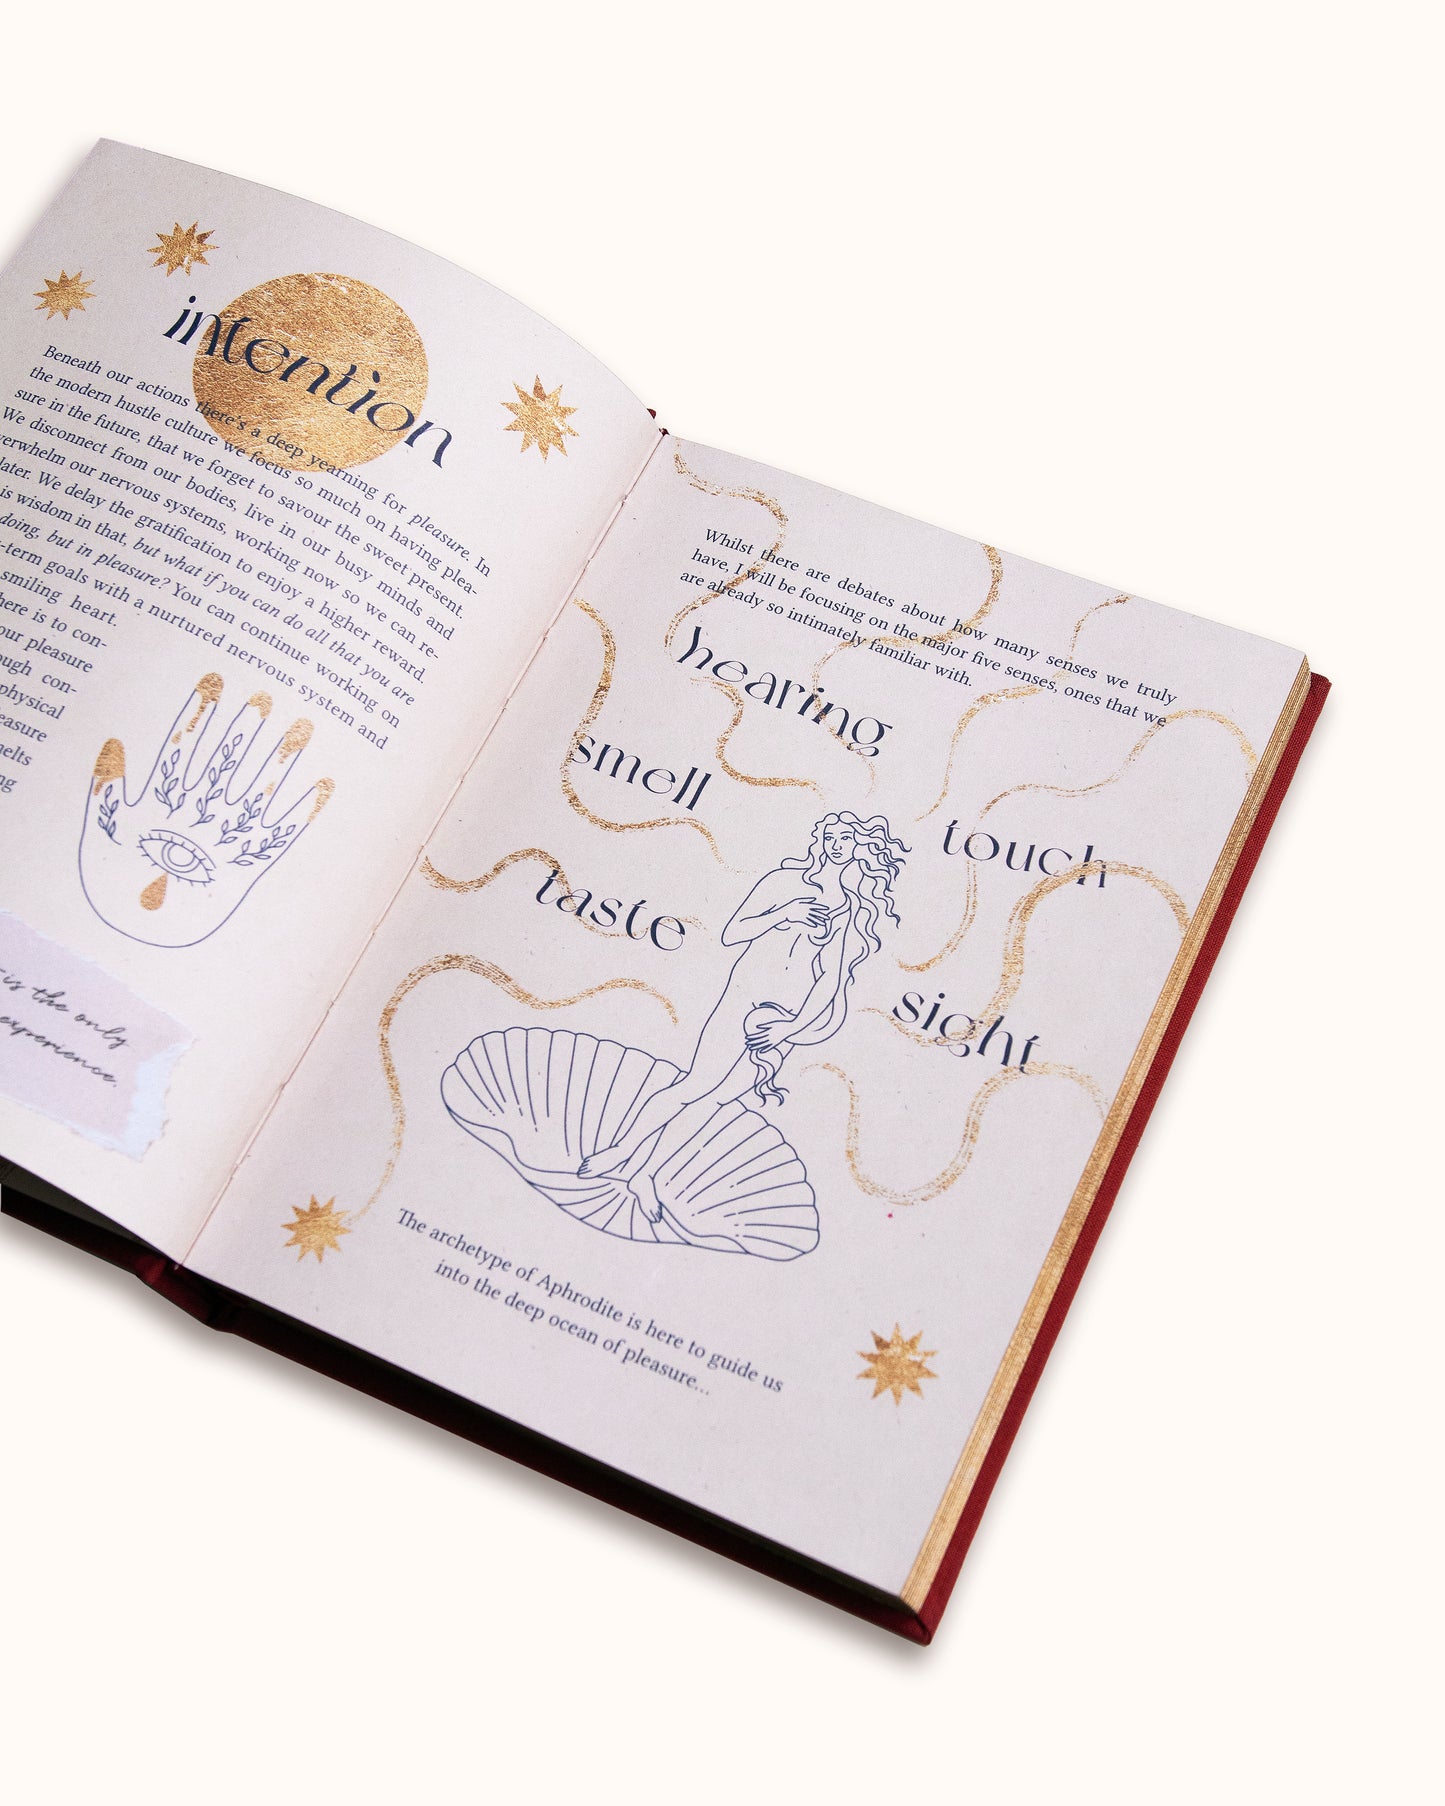 intention
Beneath our actions there's a deep yearning for pleasure. In
the modern hustle culture we focus so much on having plea-
sure in the future, that we forget to savour the sweet present.
We disconnect from our bodies, live in our busy minds and
verwhelm our nervous systems, working now so we can re-
later. We delay the gratification to enjoy a higher reward.
is wisdom in that, but what if you can do all that you are
doing, but in pleasure? You can continue working on
-term goals with a nurtured nervous system and
smiling heart.
here is to con-
our pleasure
ough con-
physical
easure
melts
ng
is the only
experience.
Whilst there are debates about how many senses we truly
have, I will be focusing on the major five senses, ones that we
are already so intimately familiar with.
hearing
smell
touch
taste
sight
The archetype of Aphrodite is here to guide us
into the deep ocean of pleasure...